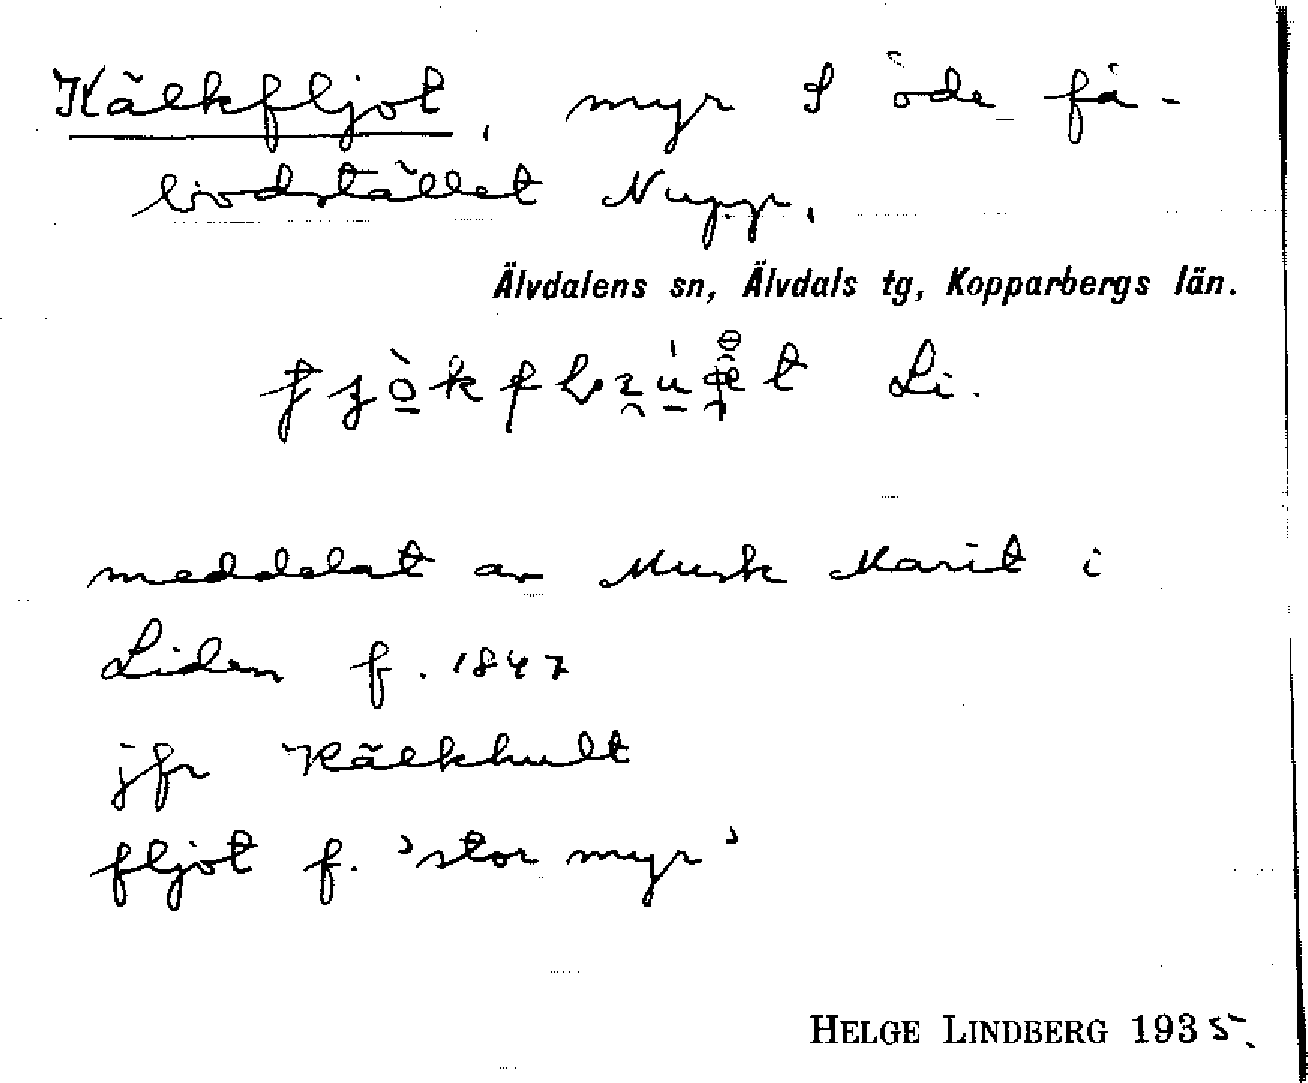 Kälkfljot, myr S öde fä-
bodstället Nupp.
Älvdalens sn, Älvdals tg, Kopparbergs län.
Li.
meddelat av Munk Marit i
Liden f. 1847
jfr Kälkhult
fljot f. 'stor myr'
HELGE LINDBERG 1935.